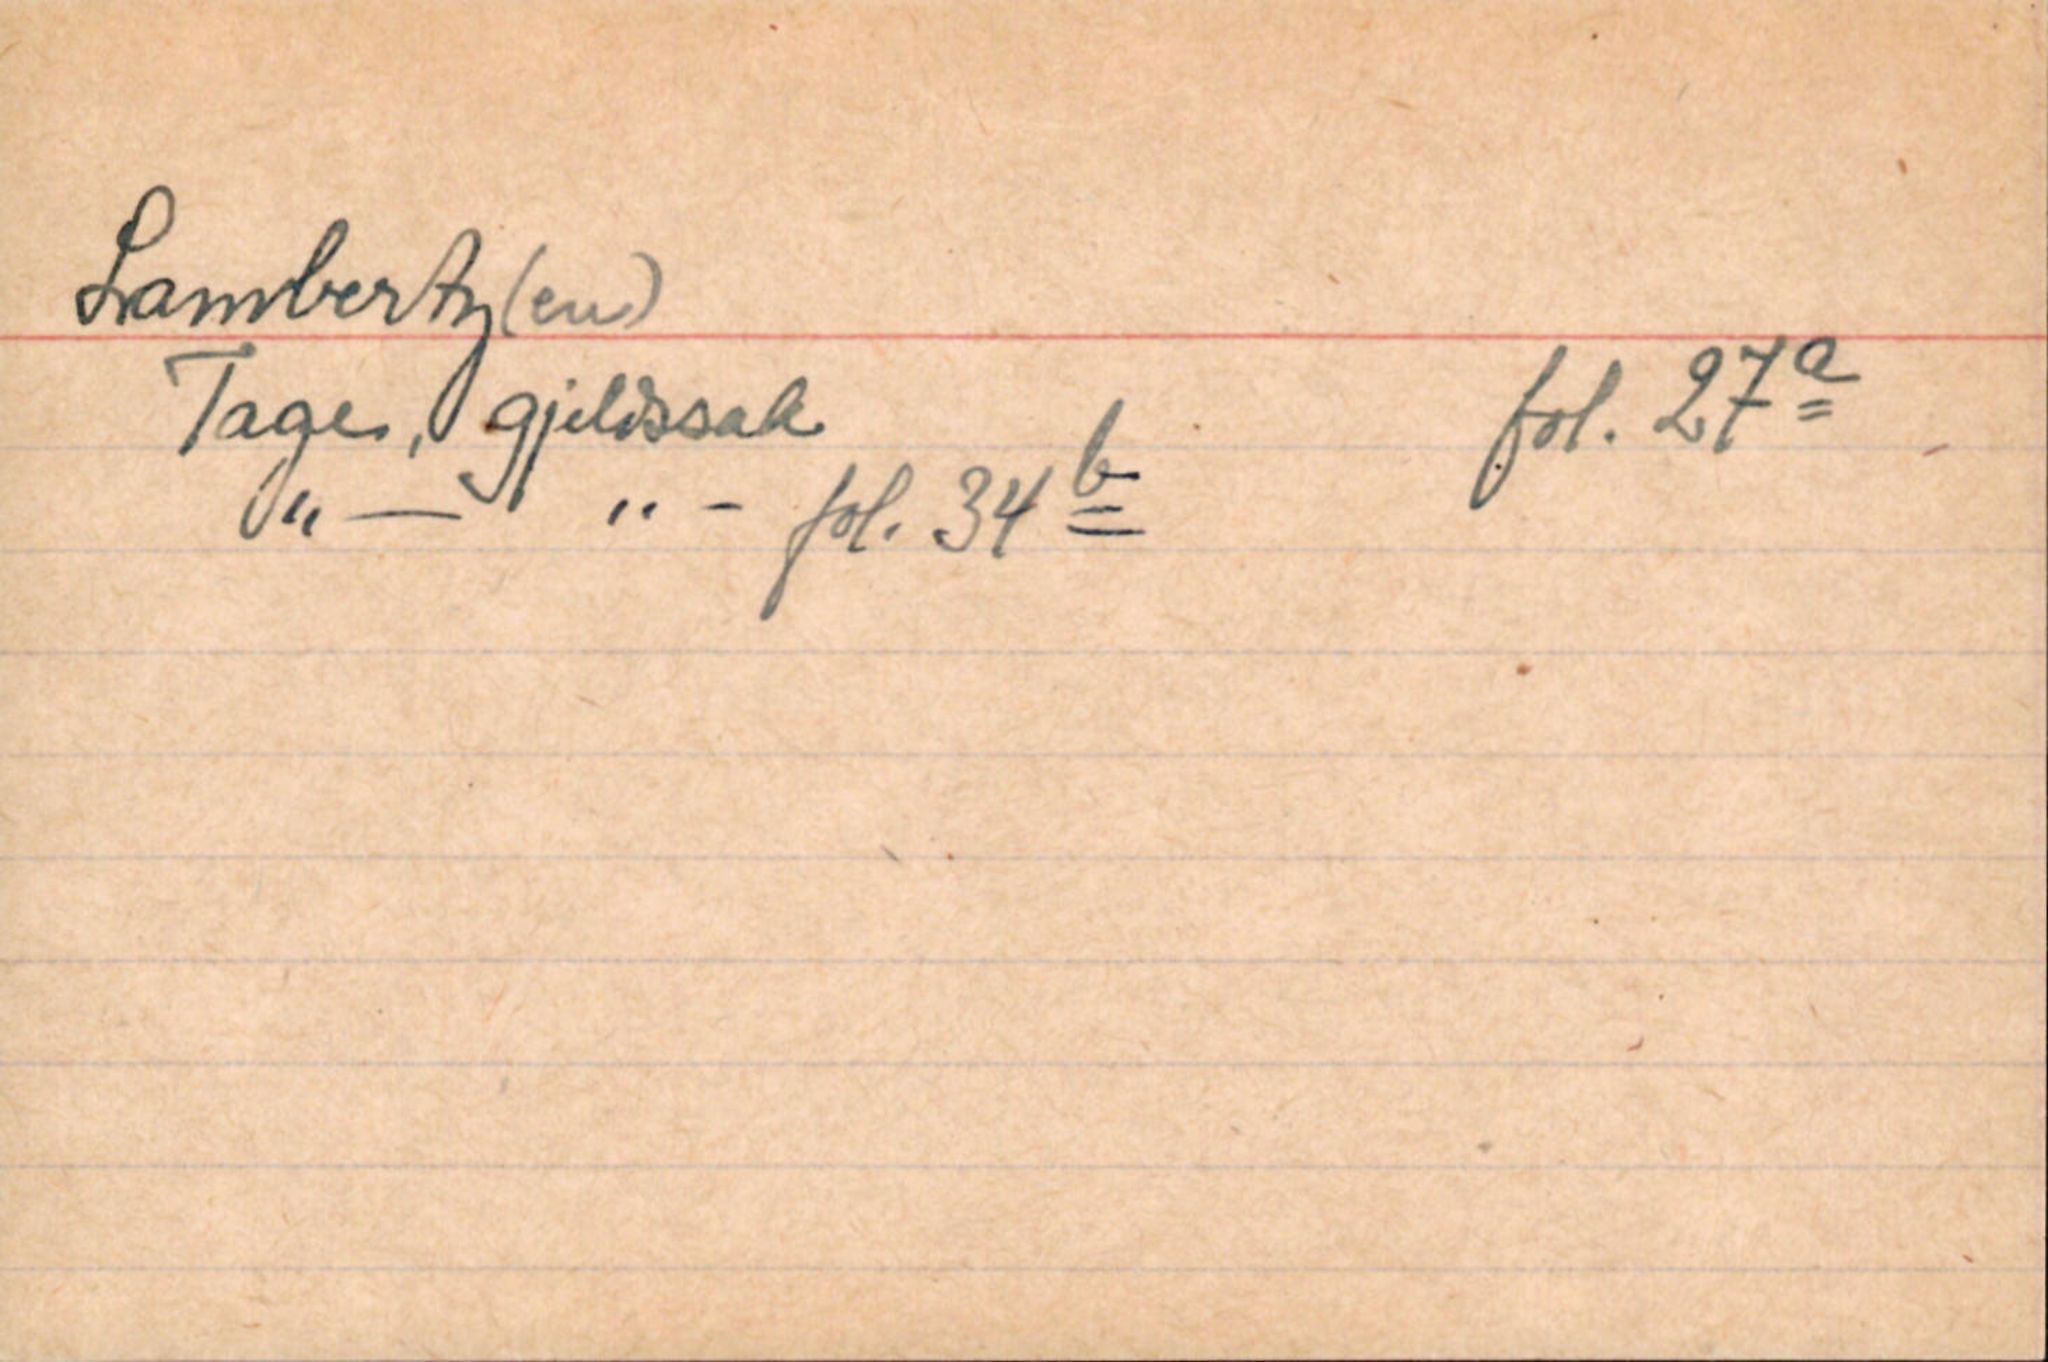 Lambertz (en)
Tage, gjeldssak fol. 27a
" — " - fol. 34b